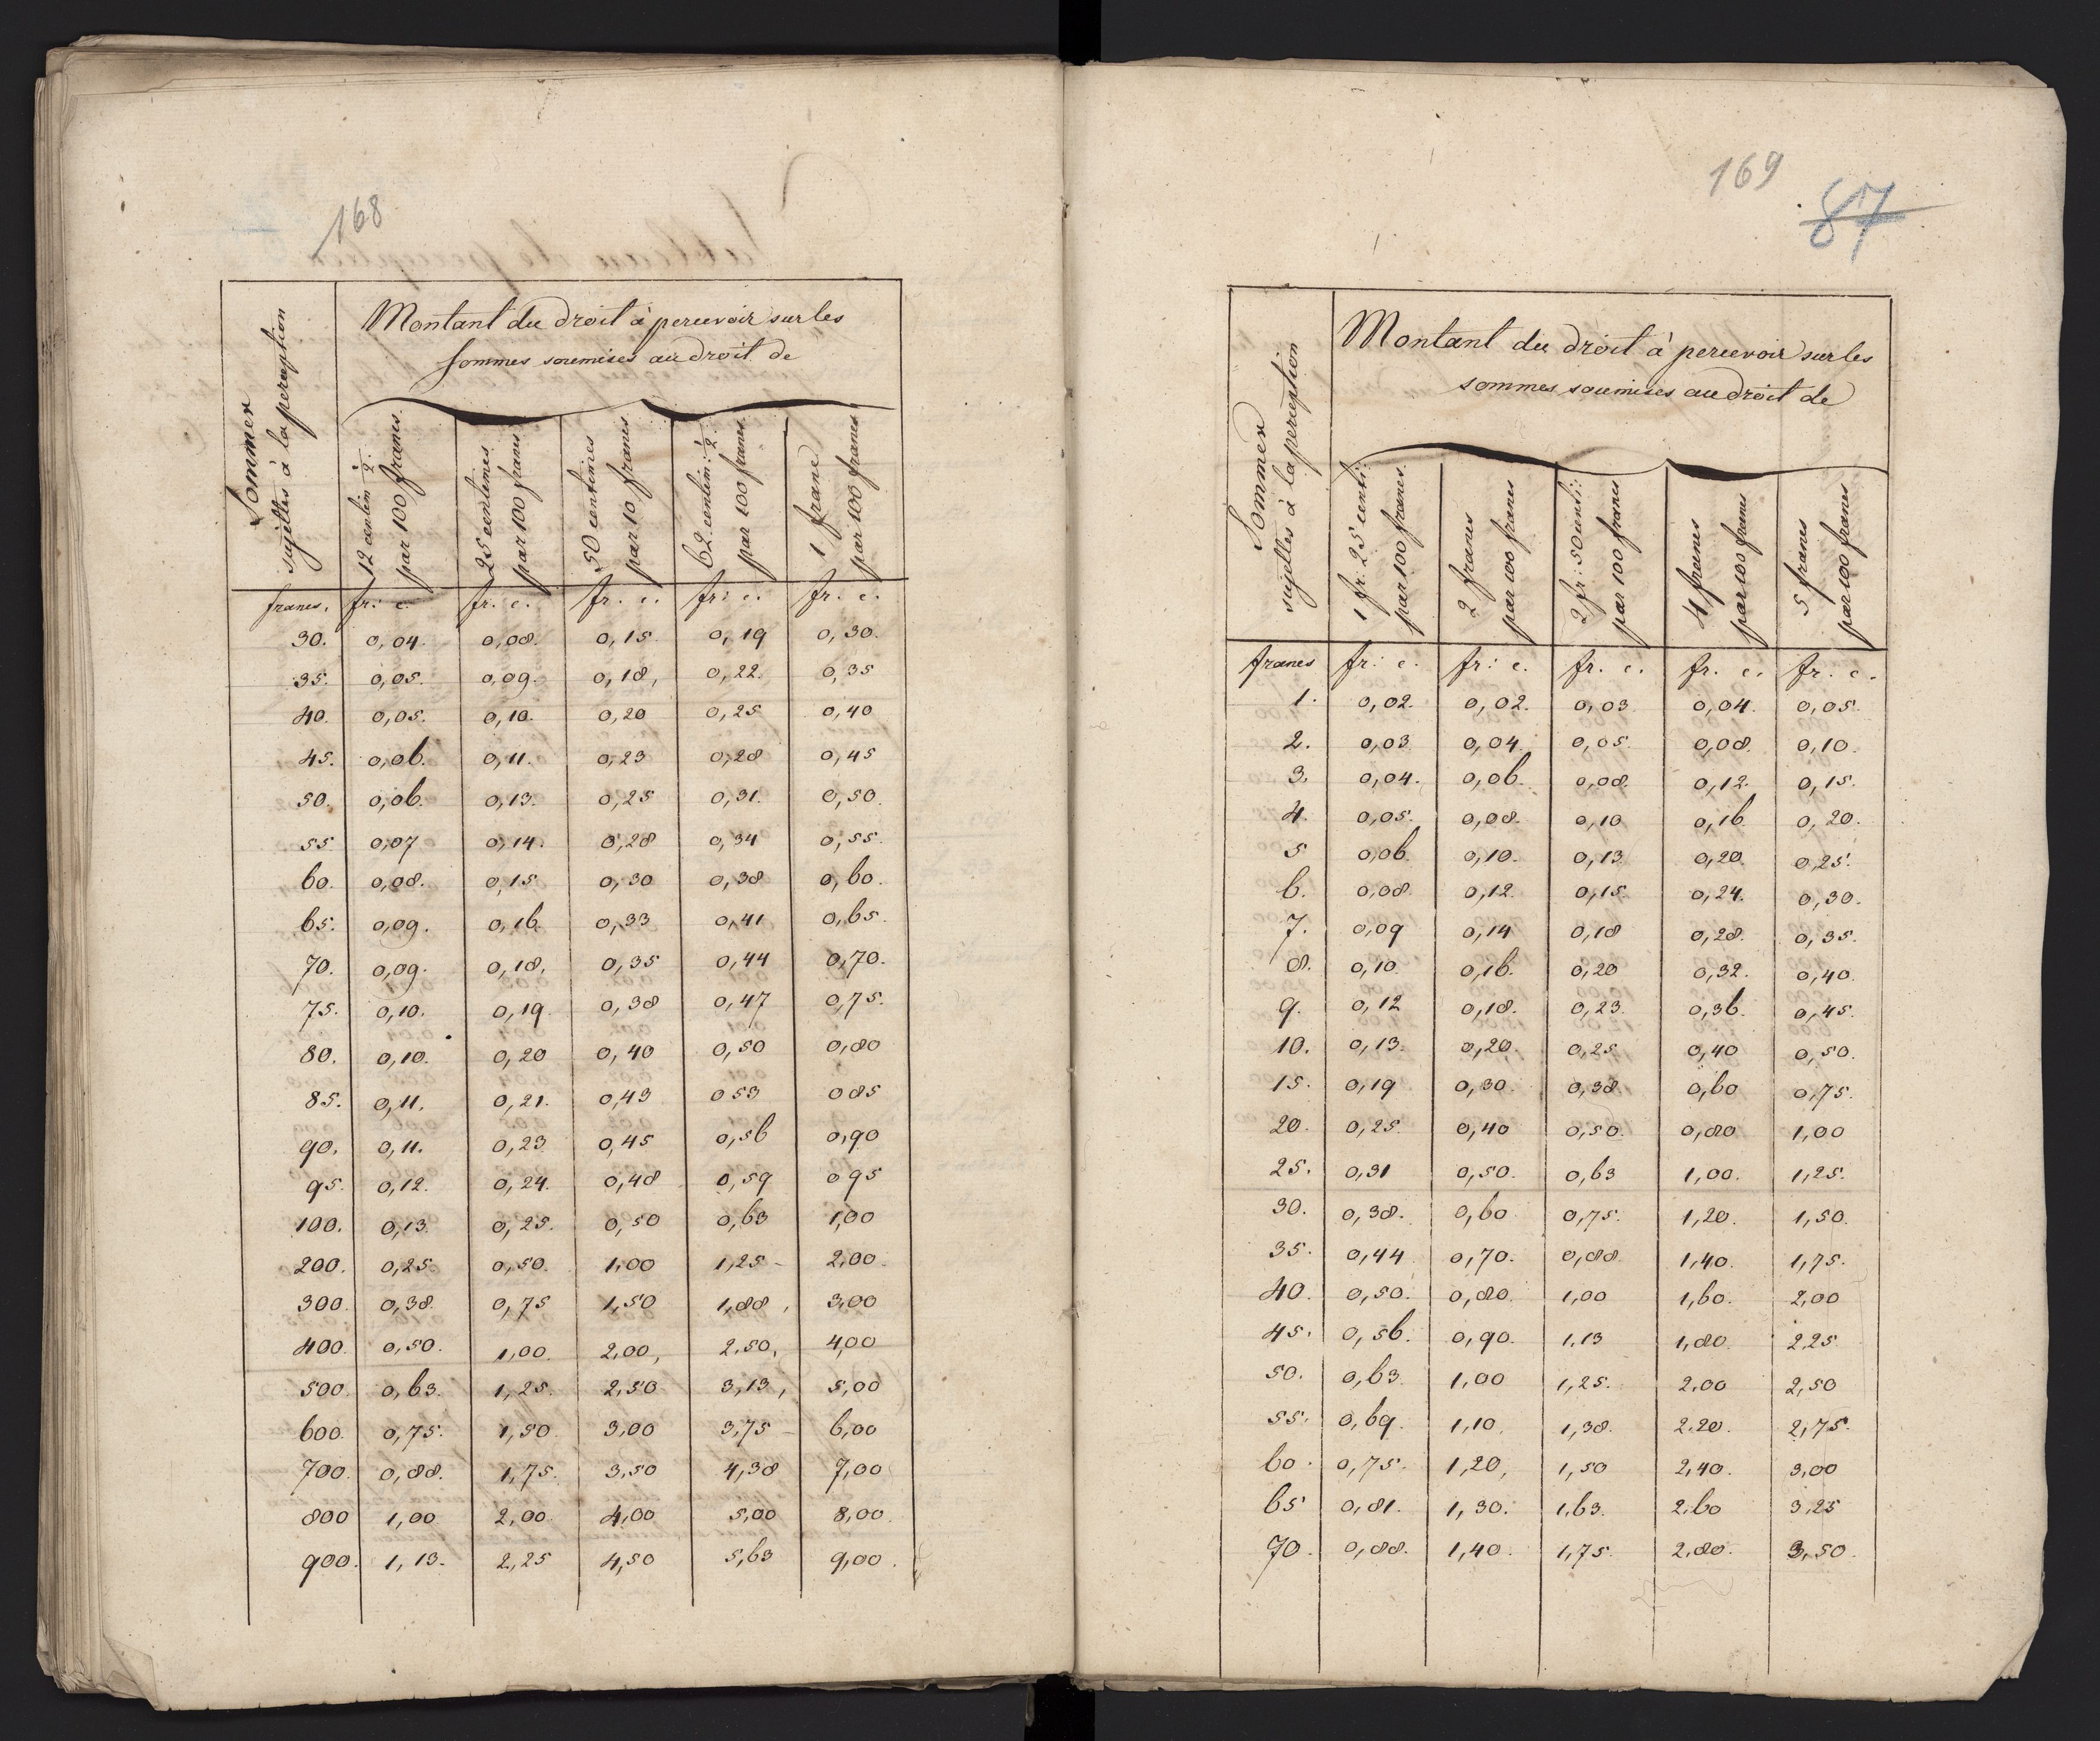 168
Montant du droit à percevoir sur les
sommes soumises au droit de
Sommes
sujettes à la perception
12 centim 1/2.
par 100 francs.
25 centimes
par 100 francs
50 centimes
par 10 francs
62 centim: 1/2.
par 100 francs.
1 franc
par 100 francs
francs. fr: c. fr. c. fr. c. fr: c. fr. c.
30. 0,04. 0,08. 0,15. 0,19 0,30.
35. 0,05. 0,09. 0,18, 0,22. 0,35
40. 0,05. 0,10. 0,20 0,25 0,40
45. 0,06. 0,11. 0,23 0,28 0,45
50. 0,06. 0,13. 0,25 0,31. 0,50.
55 0,07 0,14. 0,28 0,34 0,55.
60. 0,08. 0,15. 0,30 0,38 0,60.
65. 0,09. 0,16. 0,33 0,41 0,65.
70. 0,09. 0,18. 0,35 0,44 0,70.
75. 0,10. 0,19. 0,38 0,47 0,75.
80. 0,10. 0,20 0,40 0,50 0,80
85. 0,11. 0,21. 0,43 0 53 0 85
90. 0,11. 0,23 0,45 0,56 0,90
95. 0,12. 0,24. 0,48 0,59 0 95
100. 0,13. 0,25. 0,50 0,63 1,00
200. 0,25 0,50. 1,00 1,25 - 2,00.
300. 0,38. 0,75 1,50 1,88, 3,00
400. 0,50. 1,00. 2,00, 2,50, 4,00
500. 0,63. 1,25. 2,50 3,13, 5,00
600. 0,75. 1,50 3,00 3,75 - 6,00
700. 0,88. 1,75. 3,50 4,38 7,00
800 1,00 2,00. 4,00 5,00 8,00.
900. 1,13. 2,25 4,50 5,63 9,00.
169
87
Montant du droit à percevoir sur les
sommes soumises au droit de
Sommes
sujettes à la perception
1 fr. 25 centi:
par 100 francs.
2 francs
par 100 francs
2 fr: 50 centi:
par 100 francs
4 francs
par 100 francs
5 francs
par 100 francs
francs fr: c. fr: c. fr. c. fr. c. fr. c.
1. 0,02. 0,02. 0,03 0,04. 0,05.
2. 0,03 0,04. 0,05. 0,08. 0,10.
3. 0,04. 0,06. 0,08. 0,12. 0,15.
4. 0,05. 0,08. 0,10 0,16. 0,20.
5 0,06. 0,10. 0,13. 0,20. 0,25.
6. 0,08. 0,12. 0,15. 0,24. 0,30.
7. 0,09 0,14 0,18 0,28. 0,35.
8. 0,10. 0,16. 0,20 0,32. 0,40.
9. 0,12 0,18. 0,23. 0,36. 0,45.
10. 0,13. 0,20. 0,25. 0,40 0,50.
15. 0,19 0,30. 0,38. 0,60 0,75.
20. 0,25. 0,40 0,50. 0,80 1,00
25. 0,31 0,50. 0,63 1,00. 1,25.
30. 0,38. 0,60 0,75. 1,20. 1,50.
35. 0,44 0,70. 0,88 1,40. 1,75.
40. 0,50. 0,80. 1,00 1,60. 2,00
45. 0,56. 0,90. 1,13 1,80. 2,25
50. 0,63 1,00 1,25. 2,00 2,50
55. 0,69. 1,10. 1,38. 2,20. 2,75.
60. 0,75. 1,20, 1,50 2,40. 3,00
65 0,81. 1,30. 1,63. 2,60 3,25
70. 0,88. 1,40. 1,75. 2,80. 3,50.